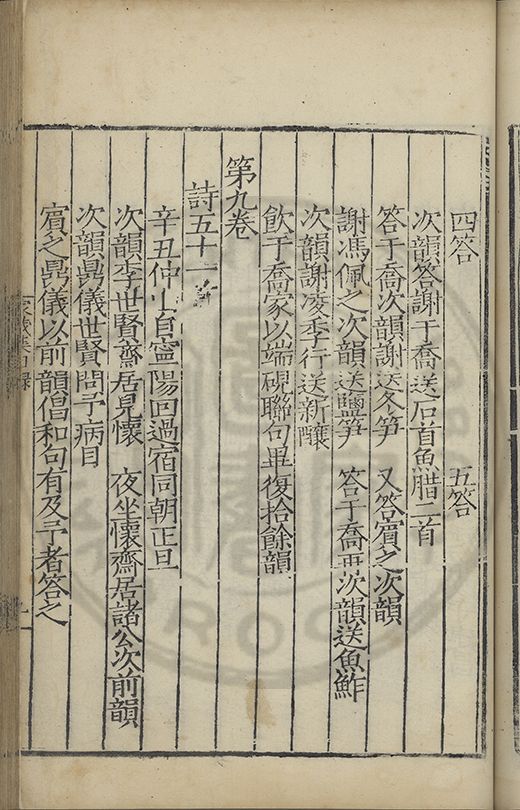 四答　五答
次韻答謝于喬送石首魚腊二首
答于喬次韻謝送冬笋　又答賓之次韻
謝馮佩之次韻送鹽笋　答于喬再次韻送魚鮓
次韻謝凌季行送新釀
飲于喬家以端硯聯句畢復拾餘韻
第九卷
詩五十一首
辛丑仲山自寧陽回過宿同朝正旦
次韻李世賢齋居見懷　夜坐懷齋居諸公次前韻
次韻鼎儀世賢問予病目
賓之鼎儀以前韻倡和句有及予者答之